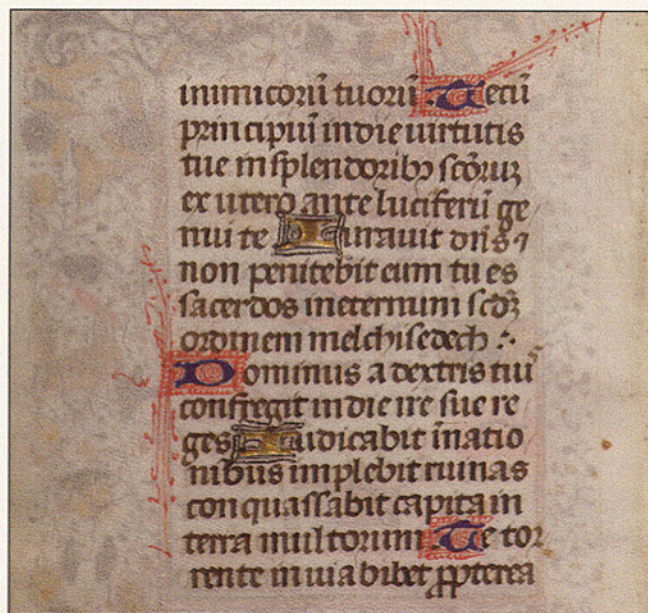 inimicorū tuorū . Tecū
principiū in die uirtutis
tue in splendoribꝫ scōruꝫ
ex utero ante luciferū ge
nui te Iurauit dn̄s ⁊
non penitebit eum tu es
sacerdos ineternum scdꝫ
ordinem melchisedech :·
Dominus a dextris tiu
confregit in die ire sue re
ges Iudicabit īnatio
nibus implebit ruinas
conquassabit capita in
terra multorum Te tor
rente in uia bibet ꝓpterea